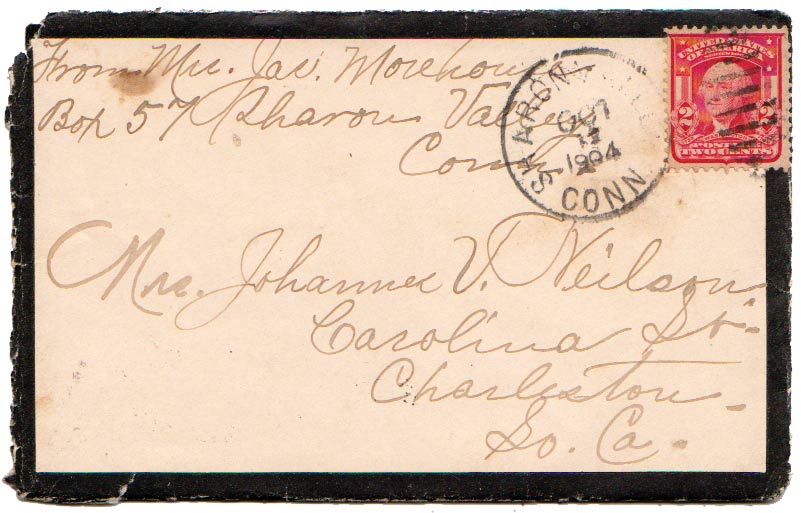 From Mrs. Jas. Morehouse
Box 57 Sharon Valley
Conn
SHARON VALLEY
OCT
17
1904
CONN.
UNITED STATES
OF AMERICA
2 2
POSTAGE
TWO CENTS
Mrs. Johannes V. Neilson
Carolina St.
Charleston
So. Ca.